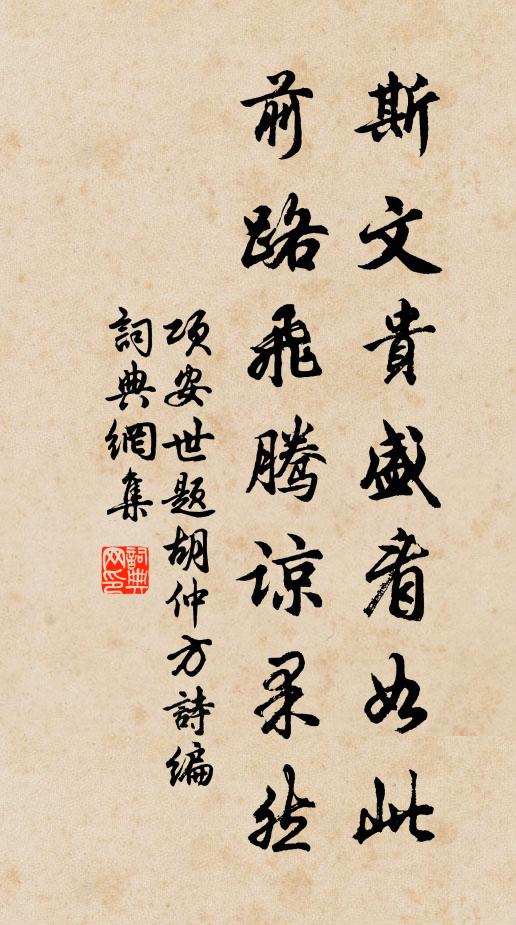 斯文貴盛者如此
前路飛騰諒果然
项安世题胡仲方詩编
詞典網集
詞典网印